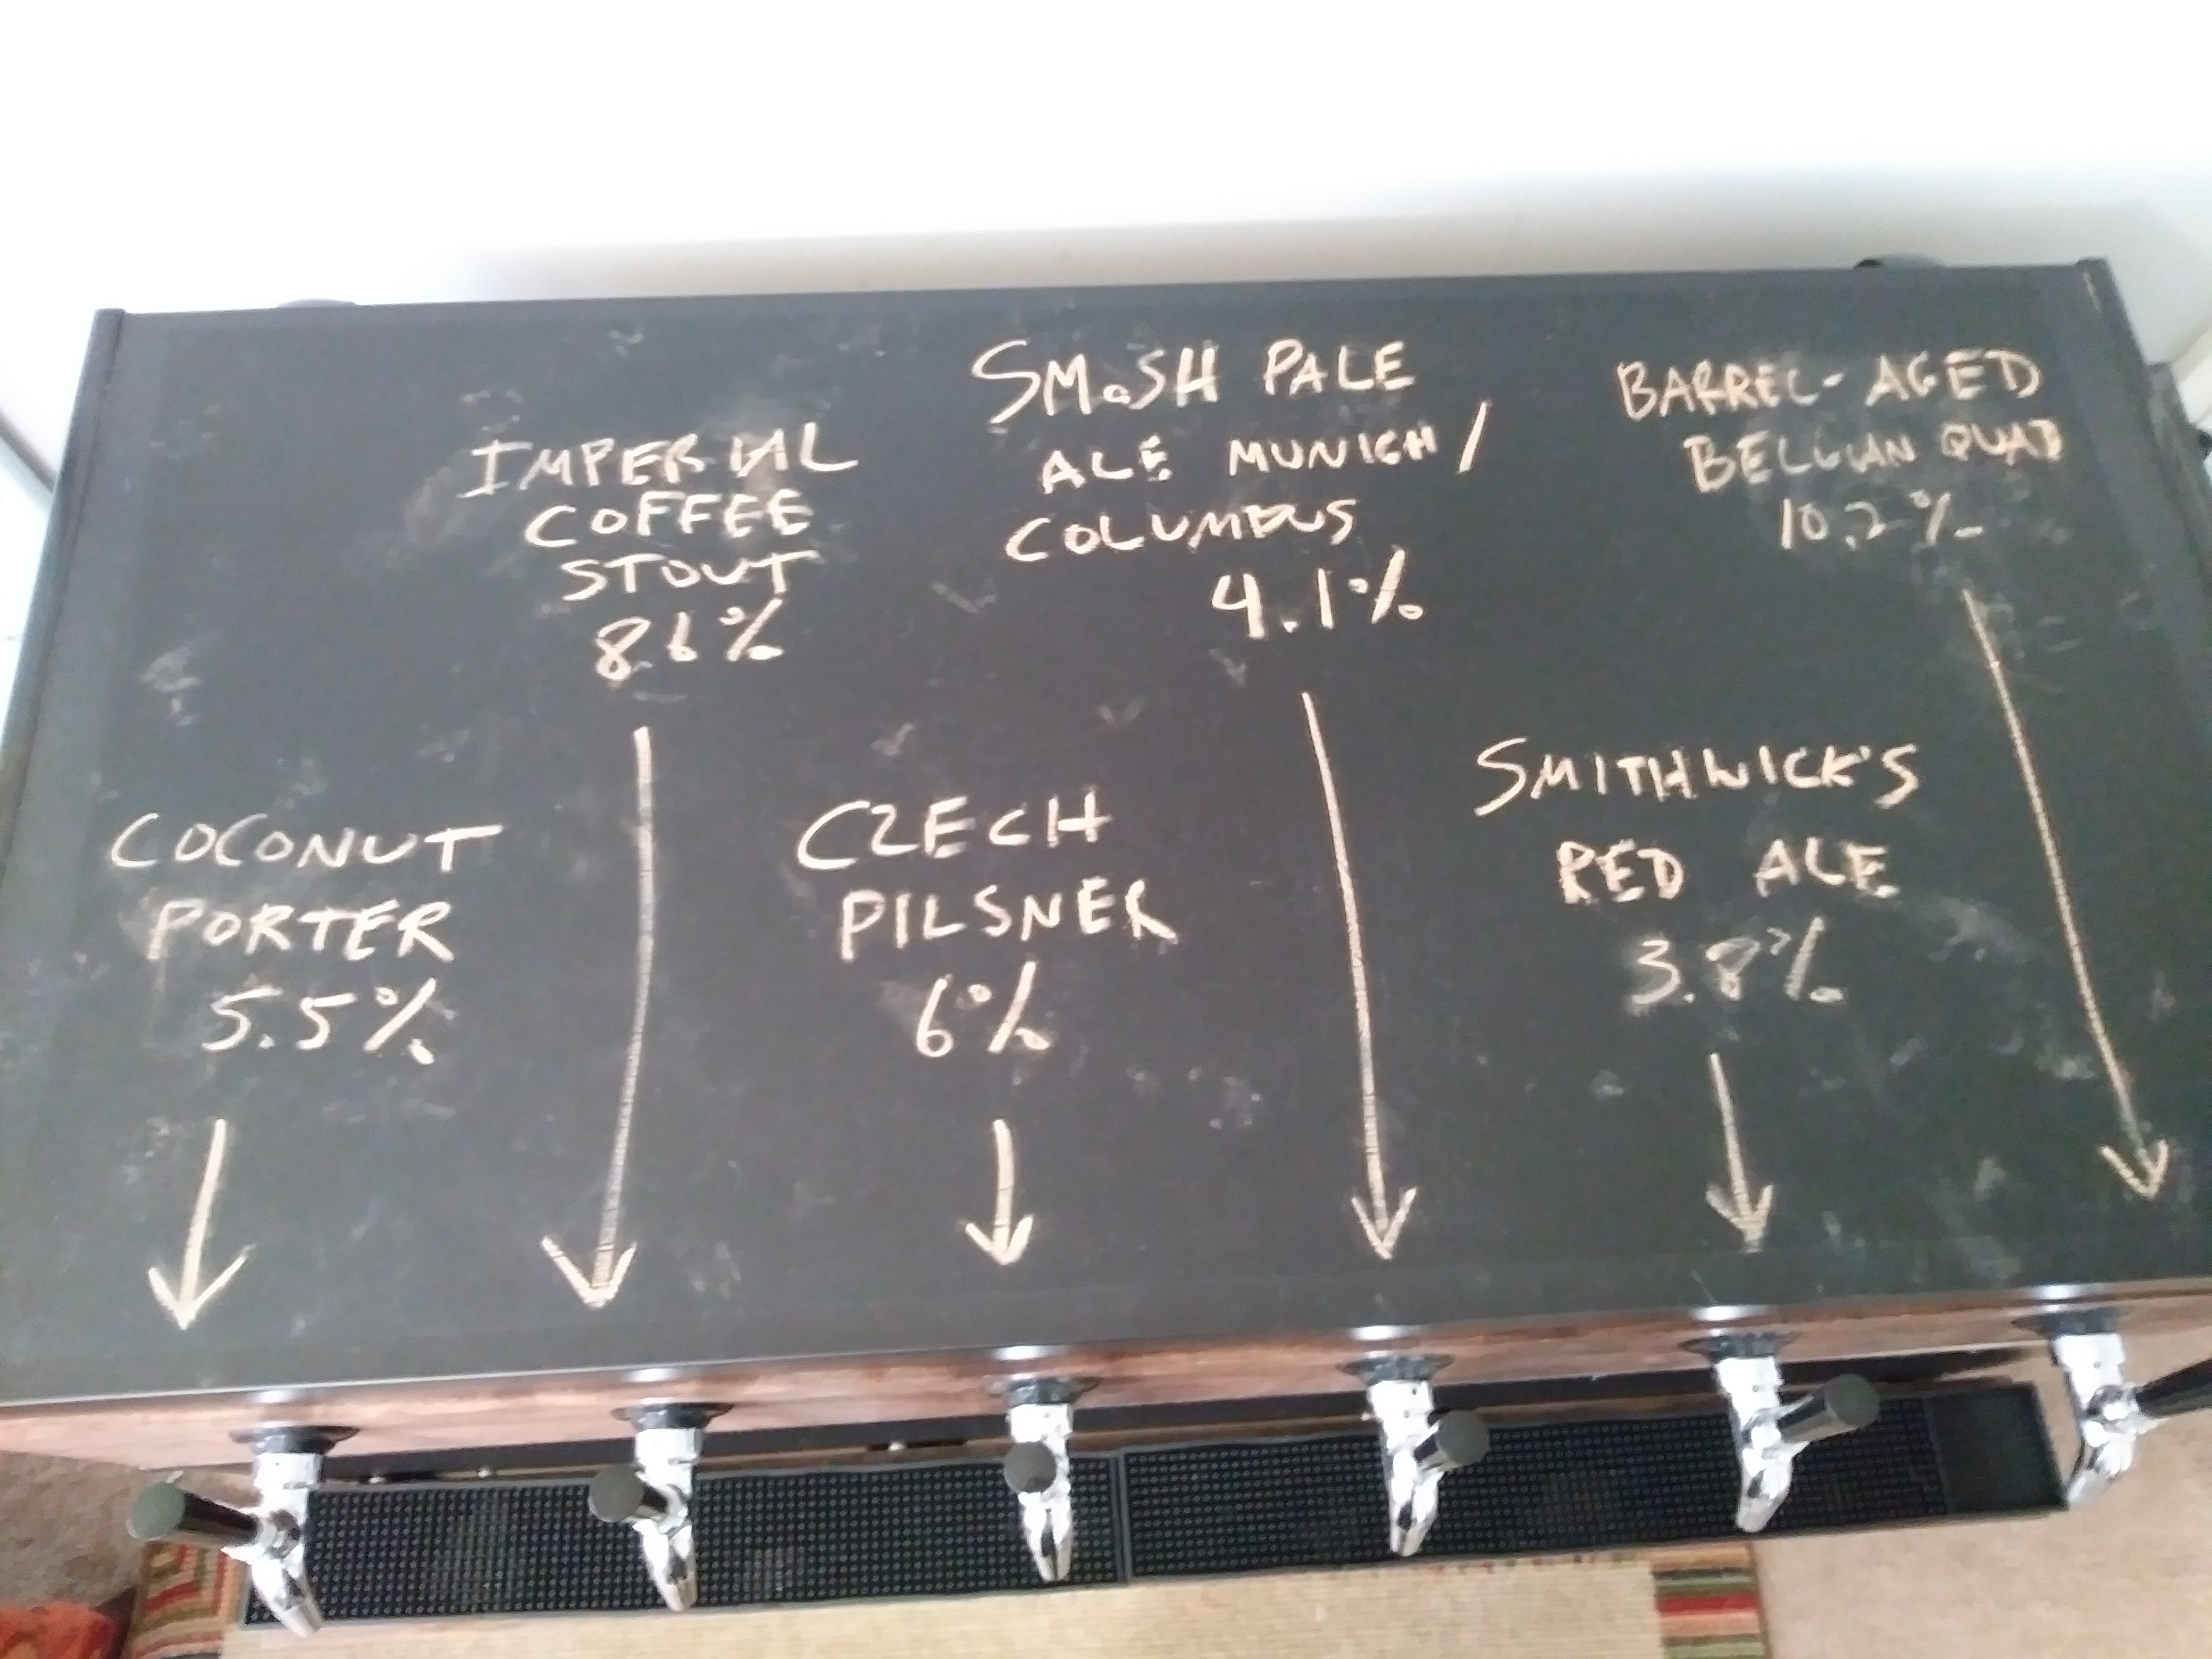 IMPERIAL
COFFEE
STOUT
8.6%
SMaSH PALE
ALE MUNICH/
COLUMBUS
4.1%
BARREL-AGED
BELGIAN QUAD
10.2%
COCONUT
PORTER
5.5%
CZECH
PILSNER
6%
SMITHWICK'S
RED ALE
3.8%